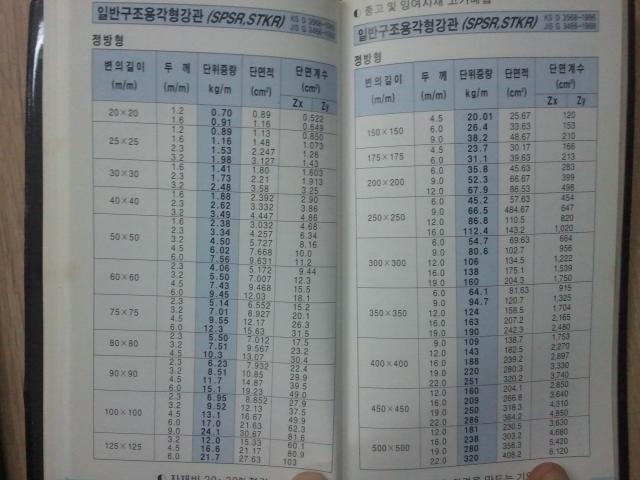 일반구조용각형강관 (SPSR,STKR) KS D 3568-1986
JIS G 3466-1988
정방형
변의길이 두께 단위중량 단면적 단면계수
(m/m) (m/m) kg/m (cm²) (cm³)
Zx Zy
20×20 1.2 0.70 0.89 0.522
1.6 0.91 1.16 0.649
25×25 1.2 0.89 1.13 0.850
1.6 1.16 1.48 1.073
2.3 1.53 2.247 1.26
3.2 1.98 3.127 1.43
30×30 1.6 1.41 1.80 1.603
2.3 1.73 2.21 1.913
3.2 2.48 3.58 3.25
40×40 1.6 1.88 2.392 2.90
2.3 2.62 3.332 3.86
3.2 3.49 4.447 4.86
50×50 1.6 2.38 3.032 4.68
2.3 3.34 4.257 6.34
3.2 4.50 5.727 8.16
4.5 6.02 7.668 10.0
6.0 7.56 9.631 11.2
60×60 2.3 4.06 5.172 9.44
3.2 5.50 7.007 12.3
4.5 7.43 9.468 15.5
6.0 9.45 12.03 18.1
75×75 2.3 5.14 6.552 15.2
3.2 7.01 8.927 20.1
4.5 9.55 12.17 26.3
6.0 12.3 15.63 31.5
80×80 2.3 5.50 7.012 17.5
3.2 7.51 9.567 23.2
4.5 10.3 13.07 30.4
90×90 2.3 6.23 7.932 22.4
3.2 8.51 10.85 29.9
4.5 11.7 14.87 39.5
6.0 15.1 19.23 49.0
100×100 2.3 6.95 8.852 27.9
3.2 9.52 12.13 37.5
4.5 13.1 16.67 49.9
6.0 17.0 21.63 62.3
9.0 24.1 30.67 81.6
125×125 3.2 12.0 15.33 60.1
4.5 16.6 21.17 80.9
6.0 21.7 27.63 103
일반구조용각형강관 (SPSR,STKR) KS D 3568-1986
JIS G 3466-1988
정방형
변의길이 두께 단위중량 단면적 단면계수
(m/m) (m/m) kg/m (cm²) (cm³)
Zx Zy
150×150 4.5 20.01 25.67 120
6.0 26.4 33.63 153
9.0 38.2 48.67 210
175×175 4.5 23.7 30.17 166
6.0 31.1 39.63 213
200×200 6.0 35.8 45.63 283
9.0 52.3 66.67 399
12.0 67.9 86.53 498
250×250 6.0 45.2 57.63 454
9.0 66.5 484.67 647
12.0 86.8 110.5 820
16.0 112.4 143.2 1,020
300×300 6.0 54.7 69.63 664
9.0 80.6 102.7 956
12.0 106 134.5 1,222
16.0 138 175.1 1,539
19.0 160 204.3 1,750
350×350 6.0 64.1 81.63 915
9.0 94.7 120.7 1,325
12.0 124 158.5 1,704
16.0 163 207.2 2,165
19.0 190 242.3 2,480
400×400 9.0 109 138.7 1,753
12.0 143 182.5 2,270
16.0 188 239.2 2,897
19.0 220 280.3 3,330
22.0 251 320.2 3,740
450×450 12.0 160 204.1 2,850
16.0 209 266.8 3,640
19.0 250 318.3 4,310
22.0 286 364.2 4,850
500×500 12.0 181 230.5 3,630
16.0 238 303.2 4,680
19.0 280 356.3 5,420
22.0 320 408.2 6,120